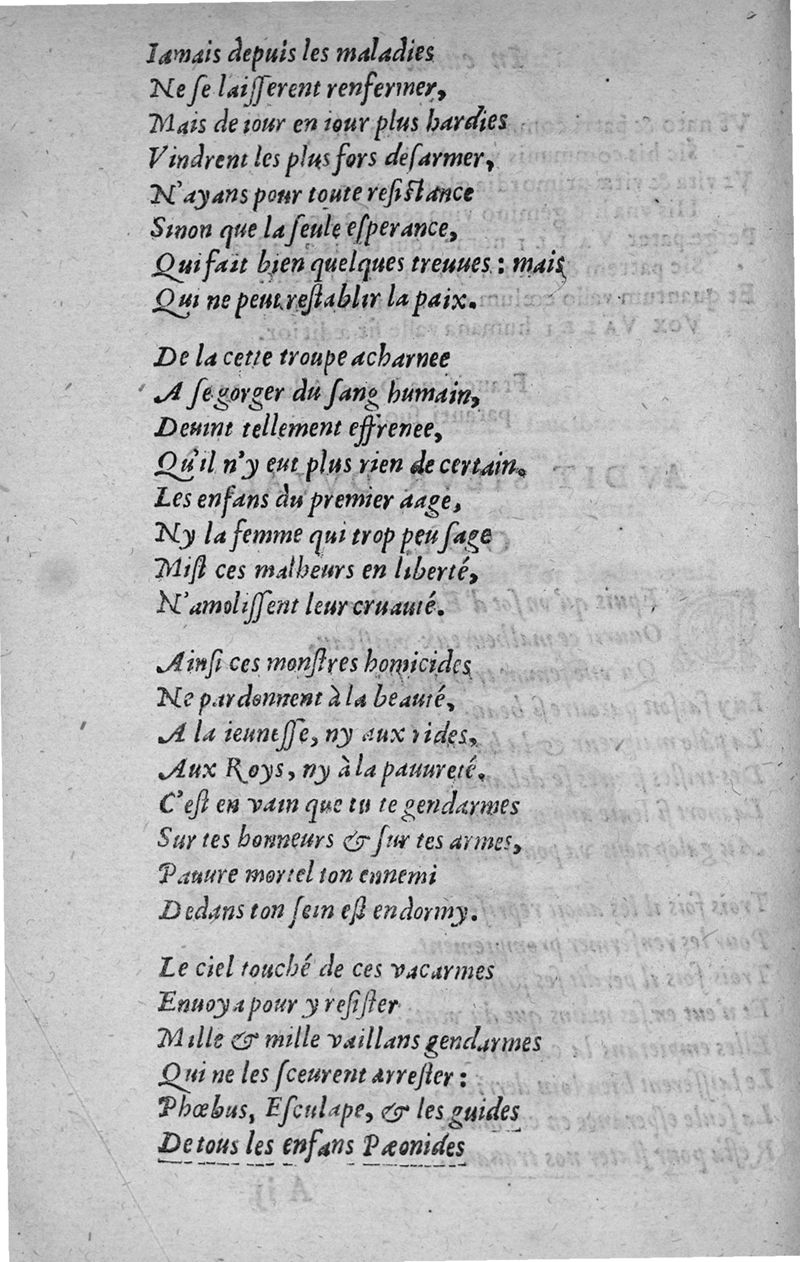 Iamais depuis les maladies
Ne se laisserent renfermer,
Mais de iour en iour plus hardies
Vindrent les plus fors desarmer,
N'ayans pour toute resistance
Sinon que la seule esperance,
Qui fait bien quelques treuues : mais
Qui ne peut restablir la paix.
De la cette troupe acharnee
A se gorger du sang humain,
Deuint tellement effrenee,
Qu'il n'y eut plus rien de certain.
Les enfans du premier aage,
Ny la femme qui trop peu sage
Mist ces malheurs en liberté,
N'amolissent leur cruauté.
Ainsi ces monstres homicides
Ne pardonnent à la beauté,
A la ieunesse, ny aux rides,
Aux Roys, ny à la pauureté.
C'est en vain que tu te gendarmes
Sur tes honneurs & sur tes armes,
Pauure mortel ton ennemi
Dedans ton sein est endormy.
Le ciel touché de ces vacarmes
Enuoya pour y resister
Mille & mille vaillans gendarmes
Qui ne les sceurent arrester :
Phœbus, Esculape, & les guides
De tous les enfans Pæonides